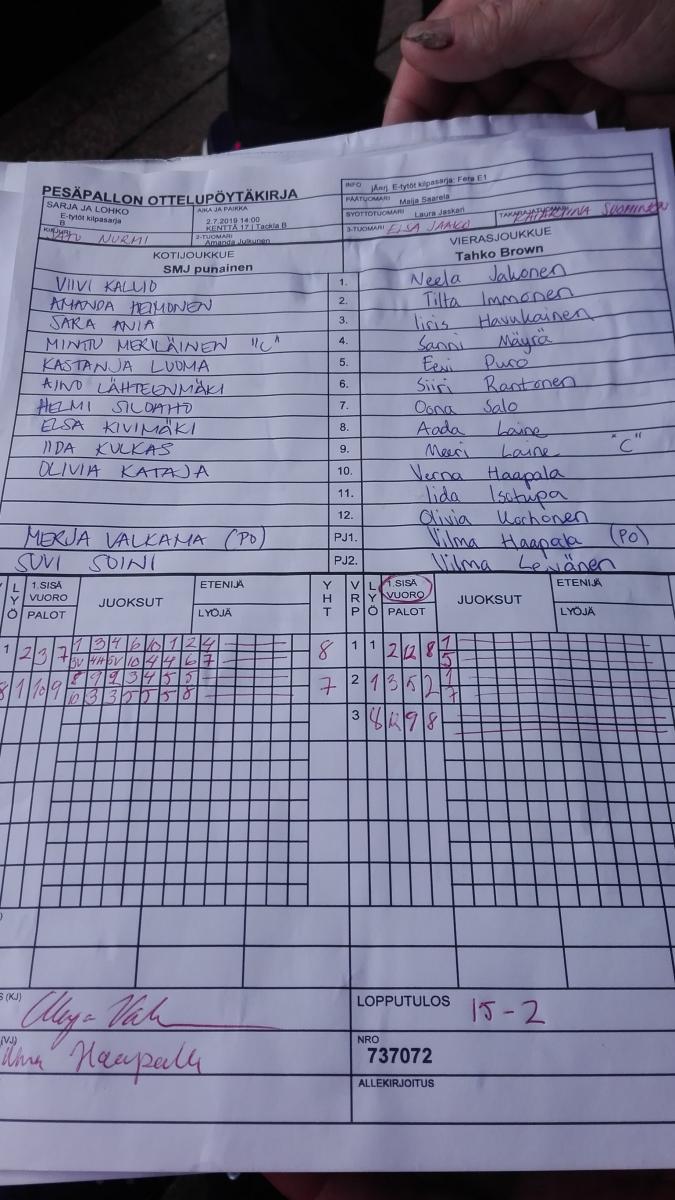 PESÄPALLON OTTELUPÖYTÄKIRJA
SARJA JA LOHKO
E-tytöt kilpasarja
B
AIKA JA PAIKKA
2.7.2019 14:00
KENTTÄ 17 | Tackla B
KIRJURI NURMI
2-TUOMARI
Amanda Julkunen
INFO jÄnrj. E-tytöt kilpasarja: Fera E1
PÄÄTUOMARI Maija Saarela
SYÖTTÖTUOMARI Laura Jaskari
3-TUOMARI ELSA JAAKO
KATARIINA SUOMINEN
KOTIJOUKKUE
SMJ punainen
VIERASJOUKKUE
Tahko Brown
VIIVI KALLIO 1. Neela Jakonen
AMANDA HEIMONEN 2. Tilta Immonen
SARA ANIA 3. Iiris Havukainen
MINTTU MERILÄINEN "C" 4. Sanni Mäyrä
KASTANJA LUOMA 5. Eevi Puro
AINO LÄHTEENMÄKI 6. Siiri Rantonen
HELMI SILOAHO 7. Oona Salo
ELSA KIVIMÄKI 8. Aada Laine
IIDA KULKAS 9. Meeri Laine "C"
OLIVIA KATAJA 10. Verna Haapala
11. Iida Isotupa
12. Olivia Korhonen
MERJA VALKAMA (PO) PJ1. Vilma Haapala (PO)
SUVI SOINI PJ2. Vilma
LYÖ 1.SISÄ VUORO PALOT JUOKSUT ETENIJÄ LYÖJÄ YHT VRP LYÖ 1.SISÄ VUORO PALOT JUOKSUT ETENIJÄ LYÖJÄ
1 2 3 7 1 3 4 6 10 1 2 4 8 1 1 2 12 8 1
3V 4H 5V 10 4 4 6 7 5
8 1 10 9 8 9 9 3 4 5 5 7 2 1 3 5 2 1
10 3 3 5 5 5 8 7
3 8 12 9 8
(KJ)
LOPPUTULOS 15-2
(VJ) Haapala
NRO
737072
ALLEKIRJOITUS